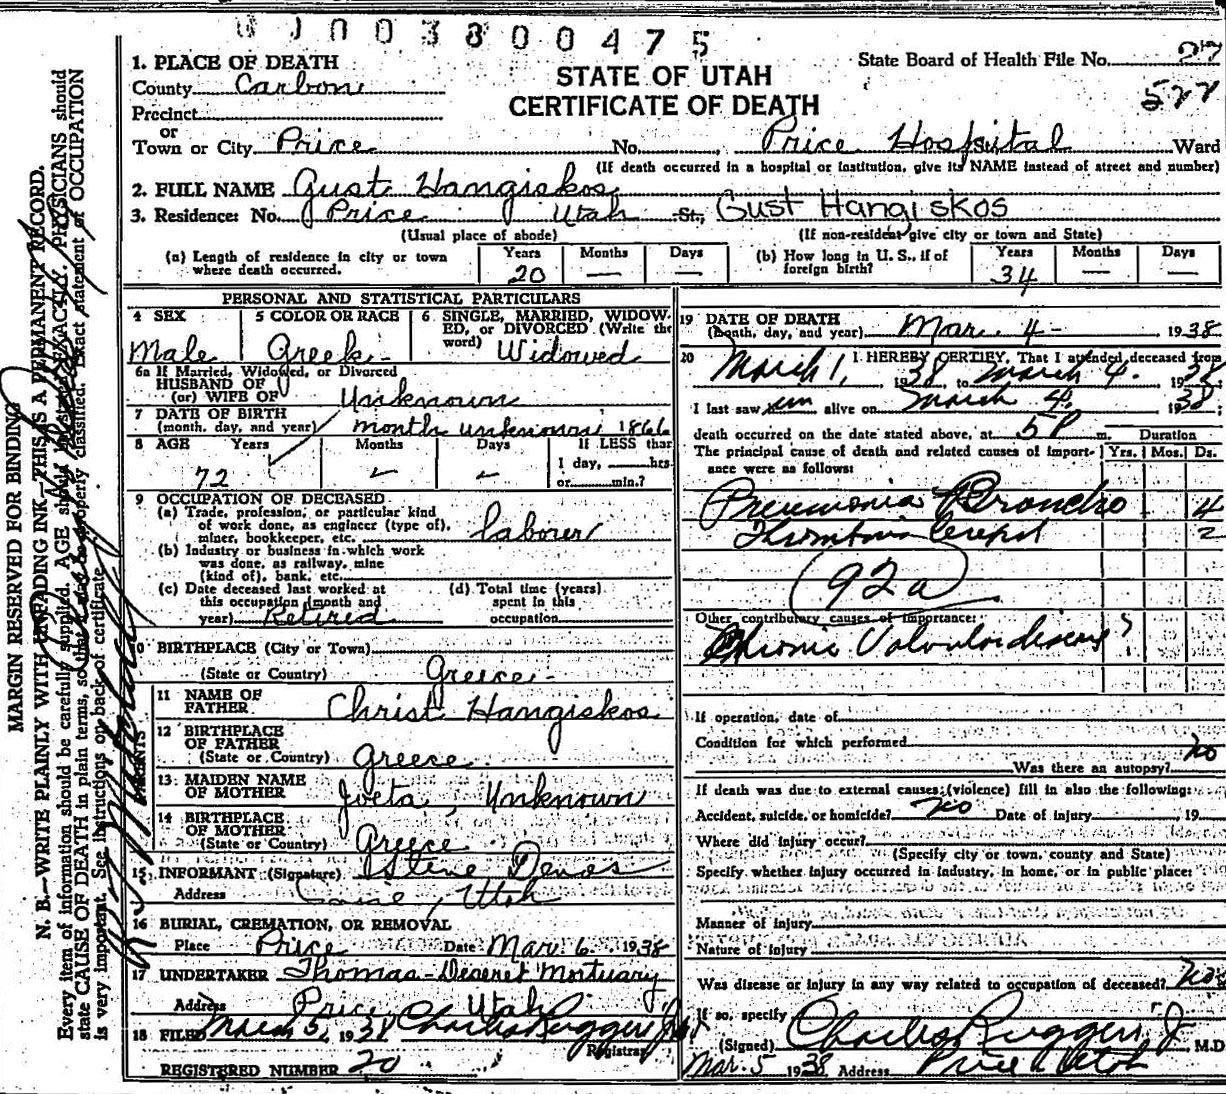 0 0 3 8 0 0 4 7 5
State Board of Health File No. 27
527
STATE OF UTAH
CERTIFICATE OF DEATH
1. PLACE OF DEATH
County Carbon
Precinct
or
Town or City Price No. Price Hospital Ward
(If death occurred in a hospital or institution, give its NAME instead of street and number)
2. FULL NAME Gust Hangiskos
3. Residence: No. Price Utah St., Gust Hangiskos
(Usual place of abode) (If non-resident give city or town and State)
(a) Length of residence in city or town where death occurred. Years 20 Months — Days —
(b) How long in U. S., if of foreign birth? Years 34 Months — Days —
PERSONAL AND STATISTICAL PARTICULARS
4 SEX Male
5 COLOR OR RACE Greek
6 SINGLE, MARRIED, WIDOWED, or DIVORCED (Write the word) Widowed
6a If Married, Widowed, or Divorced
HUSBAND OF
(or) WIFE OF Unknown
7 DATE OF BIRTH
(month, day, and year) month unknown 1866
8 AGE Years 72 Months – Days – If LESS than
1 day, hrs.
or min.?
9 OCCUPATION OF DECEASED
(a) Trade, profession, or particular kind
of work done, as engineer (type of),
miner, bookkeeper, etc. laborer
(b) Industry or business in which work
was done, as railway, mine
(kind of), bank, etc.
(c) Date deceased last worked at
this occupation (month and
year) Retired
(d) Total time (years)
spent in this
occupation
10 BIRTHPLACE (City or Town)
(State or Country) Greece
PARENTS
11 NAME OF
FATHER Christ Hangiskos
12 BIRTHPLACE
OF FATHER
(State or Country) Greece
13 MAIDEN NAME
OF MOTHER Joeta, Unknown
14 BIRTHPLACE
OF MOTHER
(State or Country) Greece
15. INFORMANT (Signature)
Address Utah
16 BURIAL, CREMATION, OR REMOVAL
Place Price Date Mar. 6 1938
17 UNDERTAKER Thomas-Deseret Mortuary
Address Price, Utah
18 FILED March 5, 1938 Charles Ruggeri
Registrar
REGISTERED NUMBER 20
19 DATE OF DEATH
(month, day, and year) Mar. 4 - 1938
20 I HEREBY CERTIFY, That I attended deceased from
March 1, 1938 to March 4. 1938
I last saw him alive on March 4. 1938.
death occurred on the date stated above, at 5 P m. Duration
The principal cause of death and related causes of importance were as follows: Yrs. Mos. Ds.
Pneumonia Broncho 4
2
92a
Other contributory causes of importance:
Chronic Valvular disease ?
If operation, date of
Condition for which performed
Was there an autopsy? no
If death was due to external causes (violence) fill in also the following:
Accident, suicide, or homicide? no Date of injury 19
Where did injury occur?
(Specify city or town, county and State)
Specify whether injury occurred in industry, in home, or in public place:
Manner of injury
Nature of injury
Was disease or injury in any way related to occupation of deceased? no
If so, specify
(Signed) Charles Ruggeri, J M.D
Mar. 5 1938 Address Price Utah
MARGIN RESERVED FOR BINDING
N. B.—WRITE PLAINLY WITH UNFADING INK—THIS IS A PERMANENT RECORD.
Every item of information should be carefully supplied. AGE should be stated EXACTLY. PHYSICIANS should
state CAUSE OF DEATH in plain terms, so that it may be properly classified. Exact statement of OCCUPATION
is very important. See instructions on back of certificate.